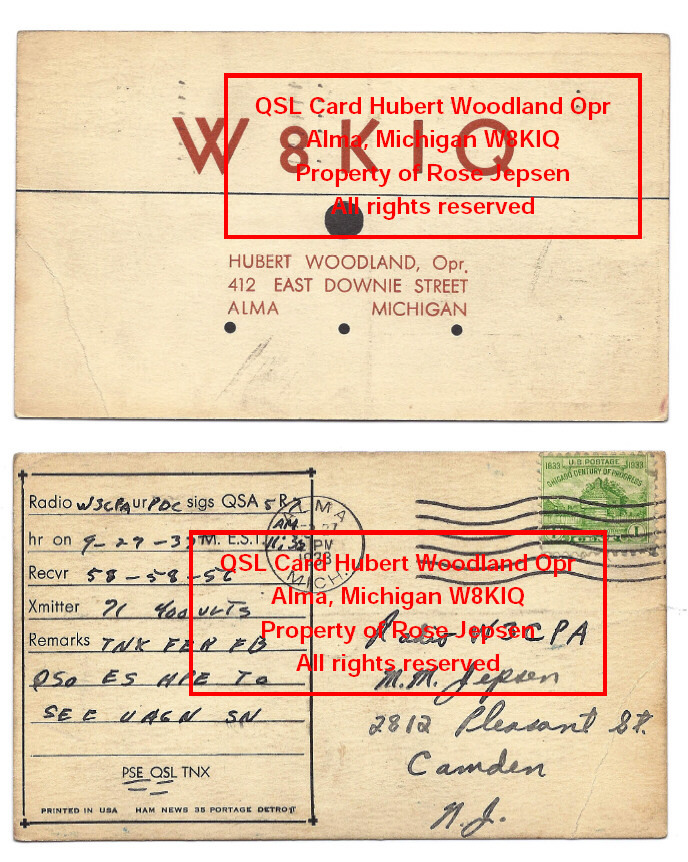 W8KIQ
QSL Card Hubert Woodland Opr
Alma, Michigan W8KIQ
Property of Rose Jepsen
All rights reserved
HUBERT WOODLAND, Opr.
412 EAST DOWNIE STREET
ALMA MICHIGAN
Radio W3CPA ur PDC sigs QSA 5 R 7
hr on 9-27-33 M. E.S.T.
Recvr 58-58-56
Xmitter 71 400 VLTS
Remarks TNK FER FB
QSO ES HPE TO
SEE U AGN SN
PSE QSL TNX
PRINTED IN USA HAM NEWS 35 PORTAGE DETROIT
ALMA
AM
27
PM
1933
MICH.
1833 U.S. POSTAGE 1933
CHICAGO CENTURY OF PROGRESS
1
QSL Card Hubert Woodland Opr
Alma, Michigan W8KIQ
Property of Rose Jepsen
All rights reserved
Radio W3CPA
M.M. Jepsen
2812 Pleasant St.
Camden
N.J.